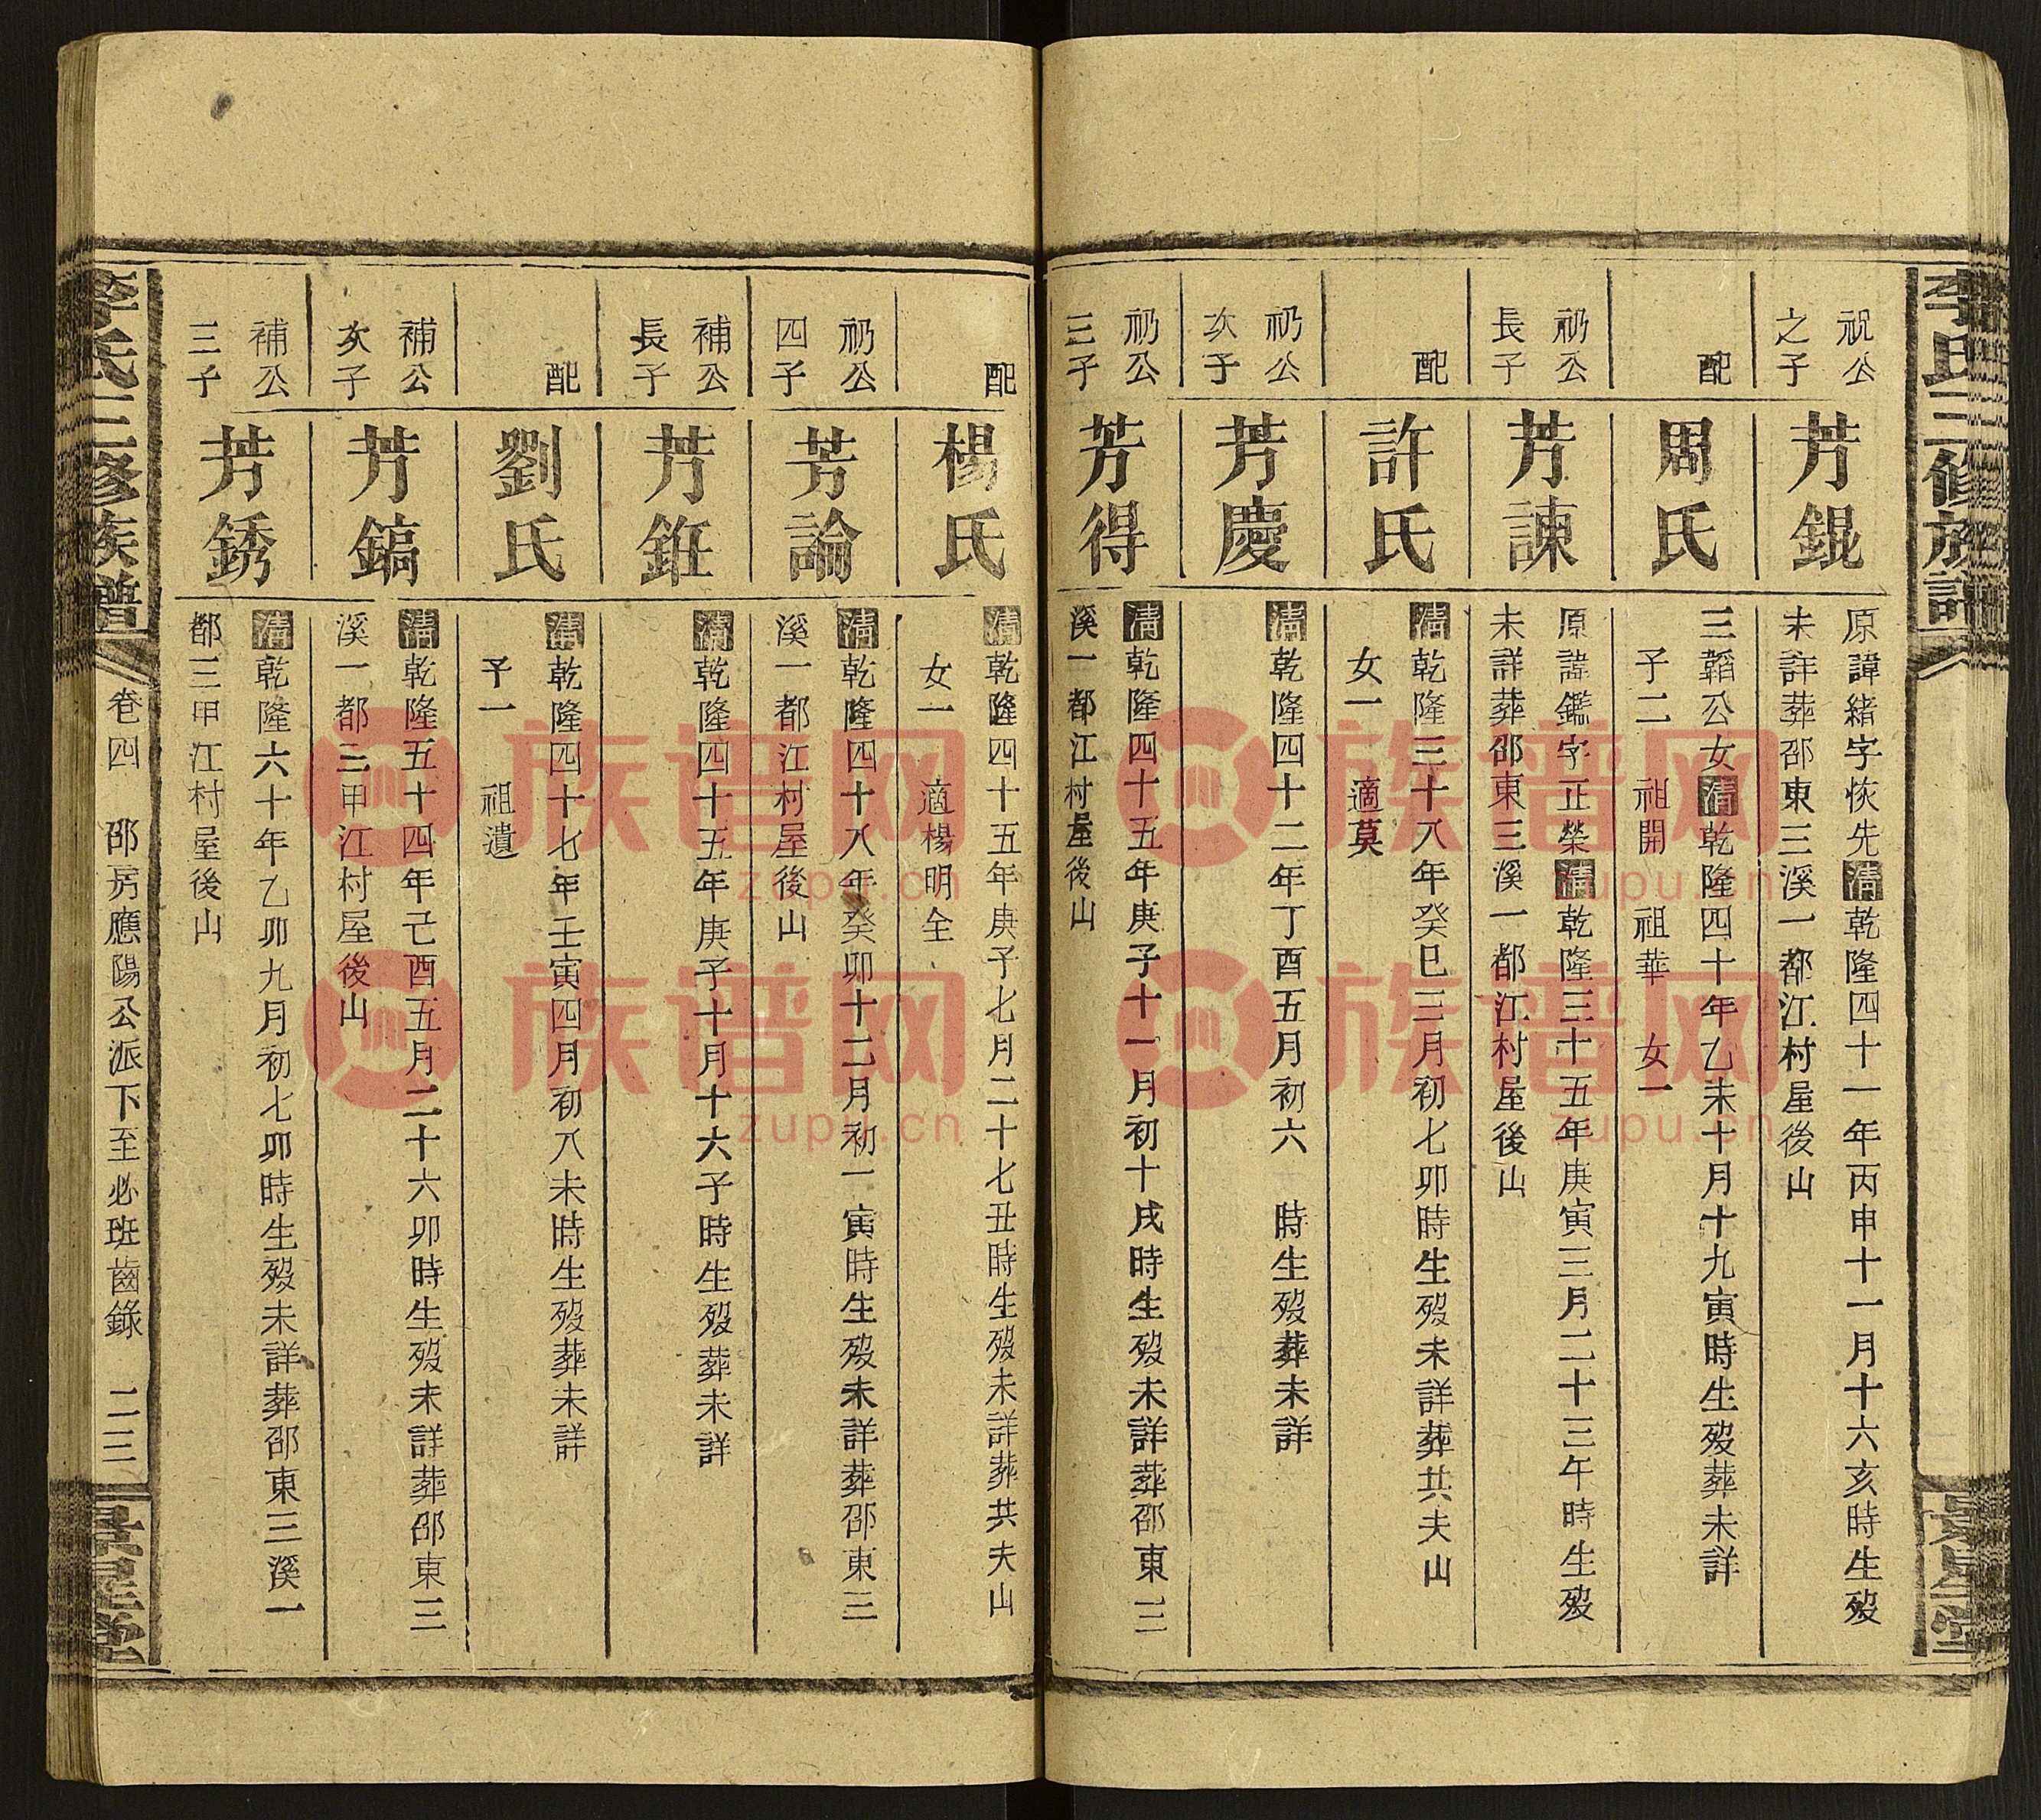 李氏三修族譜
景星堂
祝公
之子
芳錕
原諱緒字恢先清乾隆四十一年丙申十一月十六亥時生歿
未詳葬邵東三溪一都江村屋後山
配
周氏
三韜公女清乾隆四十年乙未十月十九寅時生歿葬未詳
子二 祖開 祖華 女一
礽公
長子
芳諫
原諱鑑字正榮清乾隆三十五年庚寅三月二十三午時生歿
未詳葬邵東三溪一都江村屋後山
配
許氏
清乾隆三十八年癸巳三月初七卯時生歿未詳葬共夫山
女一 適莫
礽公
次子
芳慶
清乾隆四十二年丁酉五月初六 時生歿葬未詳
礽公
三子
芳得
清乾隆四十五年庚子十一月初十戌時生歿未詳葬邵東三
溪一都江村屋後山
配
楊氏
清乾隆四十五年庚子七月二十七丑時生歿未詳葬共夫山
女一 適楊明全
礽公
四子
芳論
清乾隆四十八年癸卯十二月初一寅時生歿未詳葬邵東三
溪一都江村屋後山
補公
長子
芳鉦
清乾隆四十五年庚子十月十六子時生歿葬未詳
配
劉氏
清乾隆四十七年壬寅四月初八未時生歿葬未詳
子一 祖遺
補公
次子
芳鎬
清乾隆五十四年己酉五月二十六卯時生歿未詳葬邵東三
溪一都三甲江村屋後山
補公
三子
芳銹
清乾隆六十年乙卯九月初七卯時生歿未詳葬邵東三溪一
都三甲江村屋後山
李氏三修族譜
卷四 邵房應陽公派下至必班齒錄 二三
景星堂
族谱网
zupu.cn
族谱网
zupu.cn
族谱网
zupu.cn
族谱网
zupu.cn